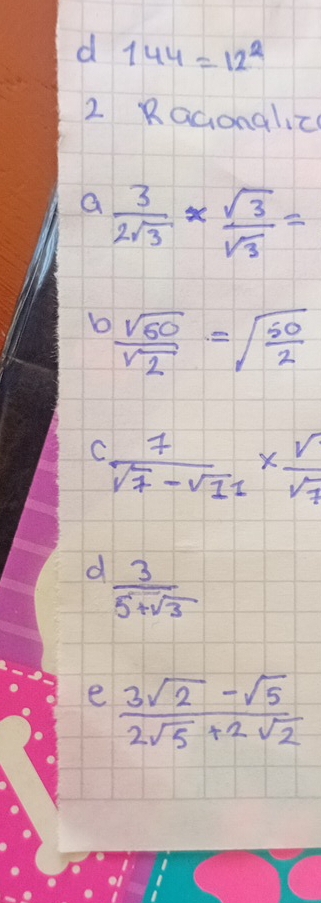 d 144 = 12²
2 Racionaliz
a 3/(2√3) × √3/√3 =
b √50/√2 = √(50/2)
c 7/(√7 - √11) × √/√7
d 3/(5+√3)
e (3√2 - √5)/(2√5 + 2√2)